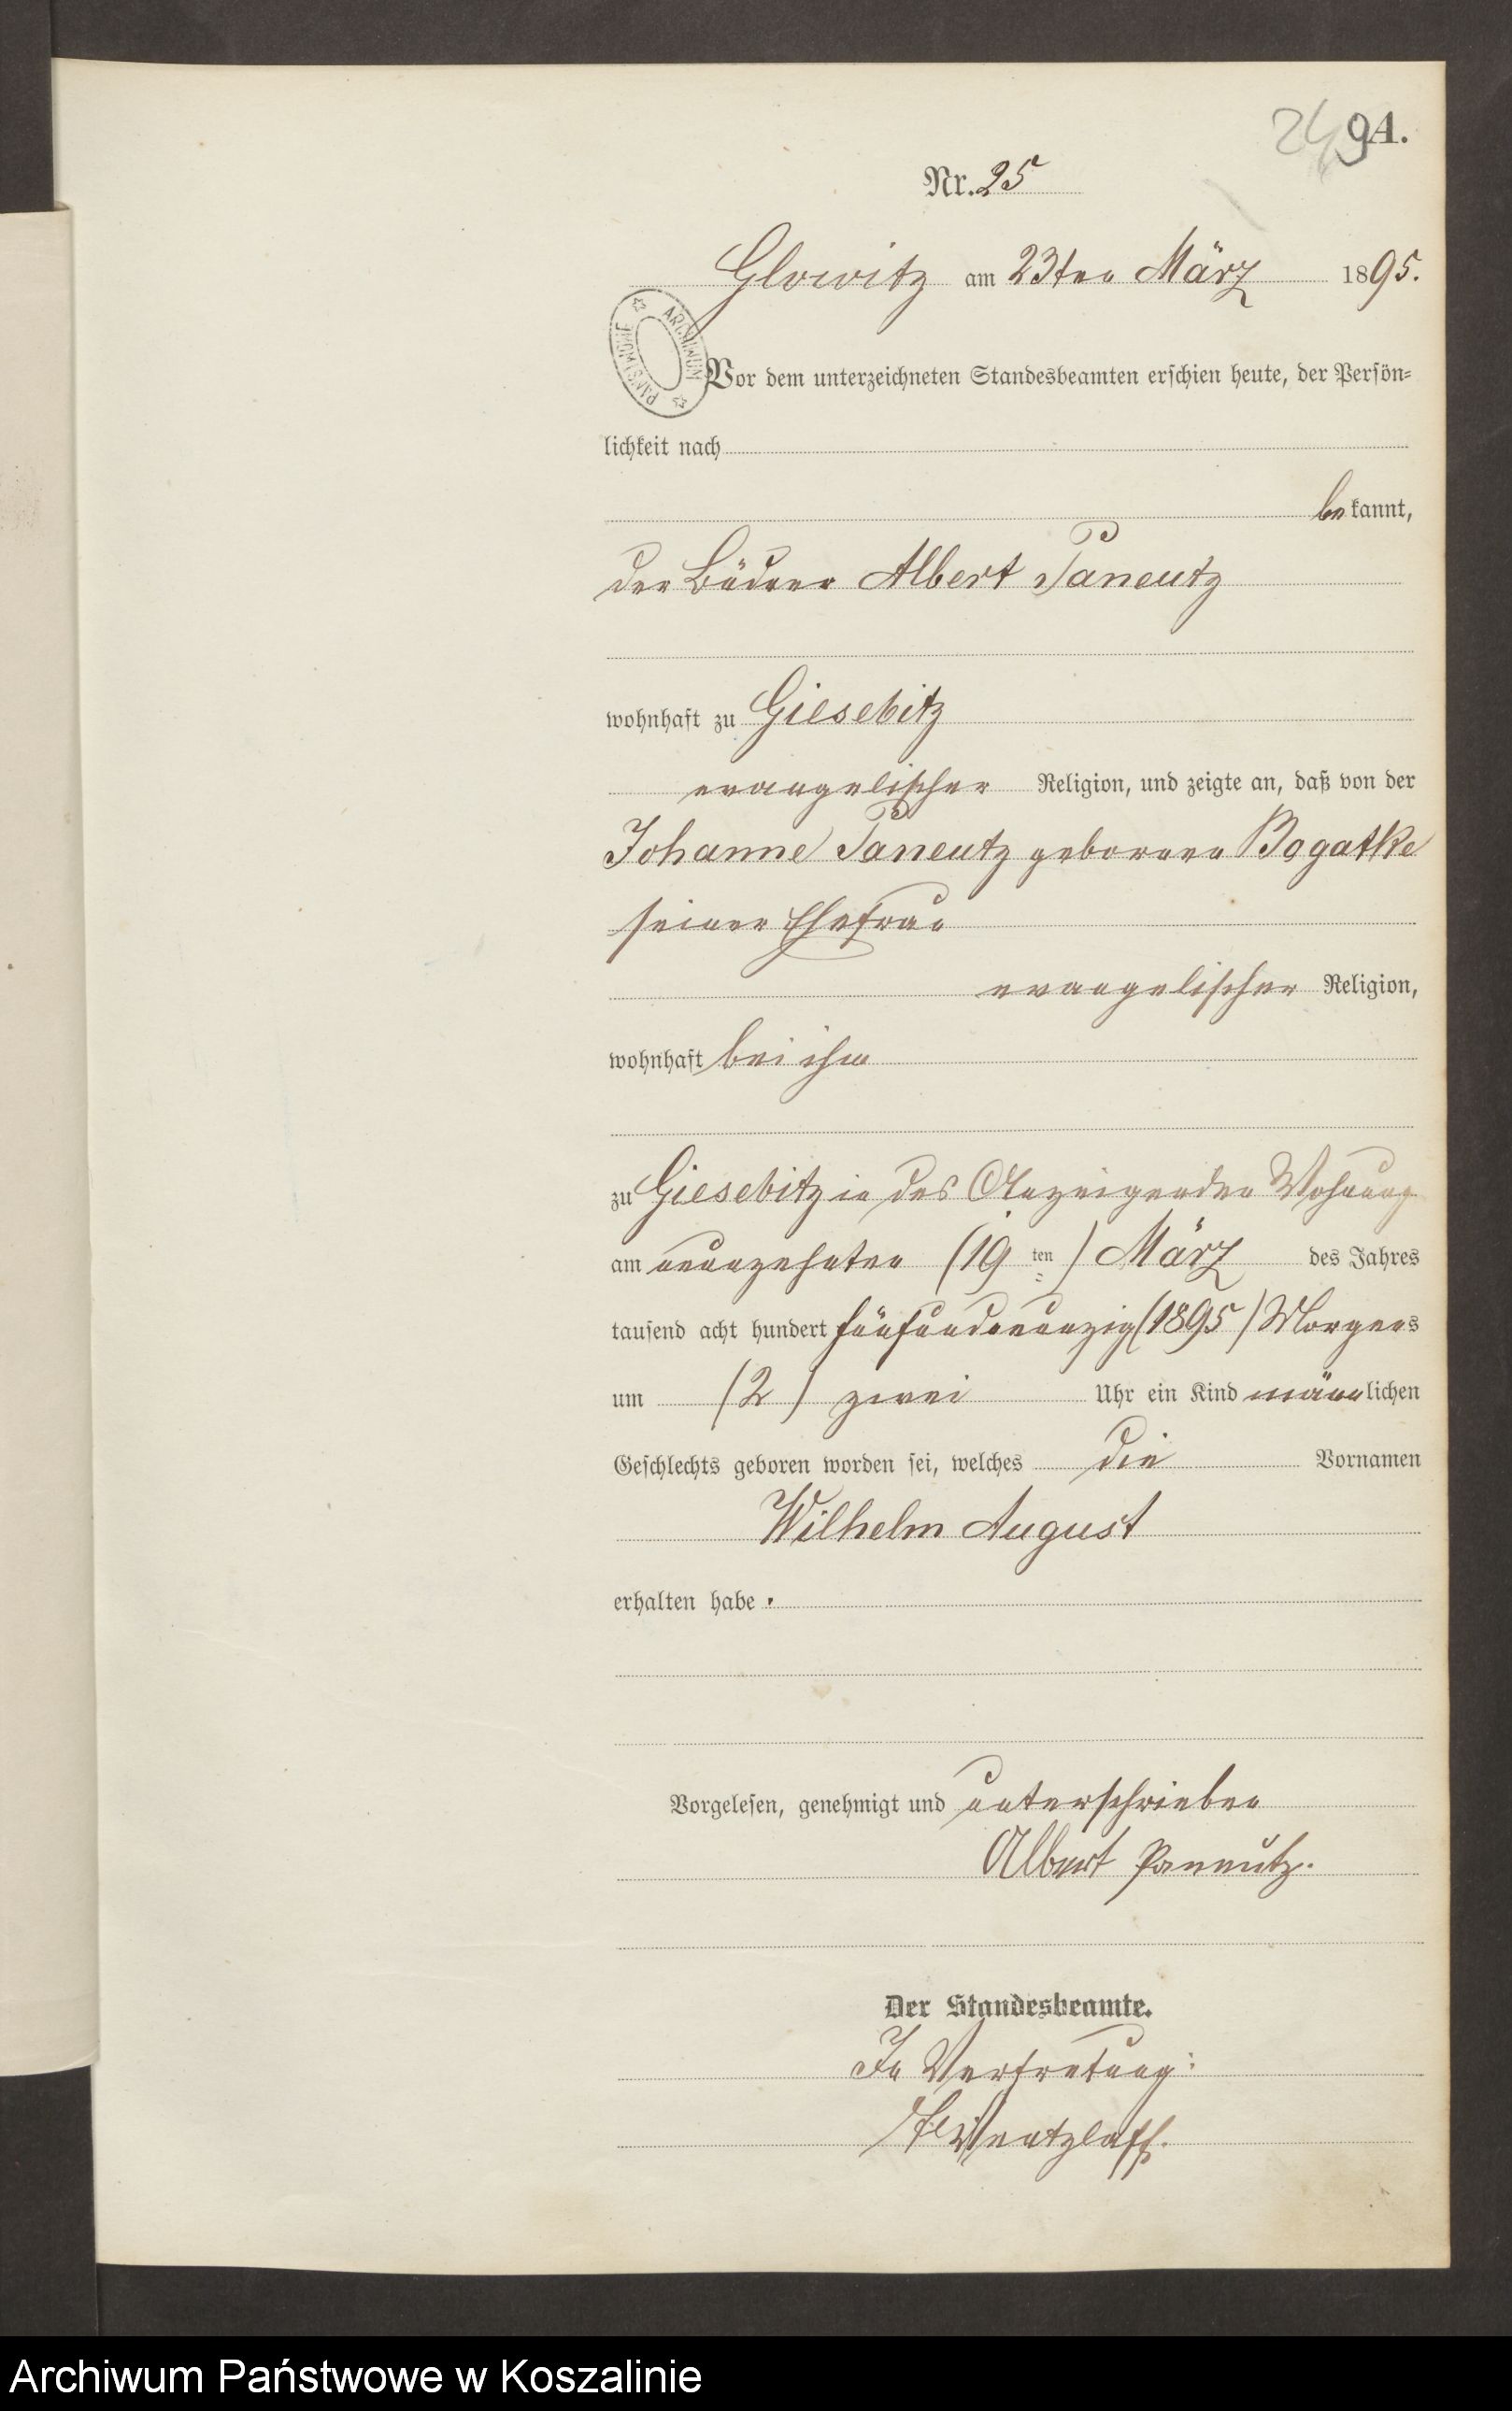 249
A.
Nr. 25
Glowitz am 23ten März 1895.
ARCHIWUM PAŃSTWOWE
Vor dem unterzeichneten Standesbeamten erschien heute, der Persön=
lichkeit nach
bekannt,
der Büdner Albert Paneutz
wohnhaft zu Giesebitz
evangelischer Religion, und zeigte an, daß von der
Johanne Paneutz geborenen Bogatke
seiner Ehefrau
evangelischer Religion,
wohnhaft bei ihm
zu Giesebitz in des Anzeigenden Wohnung
am neunzehnten (19ten) März des Jahres
tausend acht hundert fünfundneunzig (1895) Morgens
um (2) zwei Uhr ein Kind männlichen
Geschlechts geboren worden sei, welches die Vornamen
Wilhelm August
erhalten habe.
Vorgelesen, genehmigt und unterschrieben
Albert Paneutz.
Der Standesbeamte.
In Vertretung:
Wentzlaff.
Archiwum Państwowe w Koszalinie